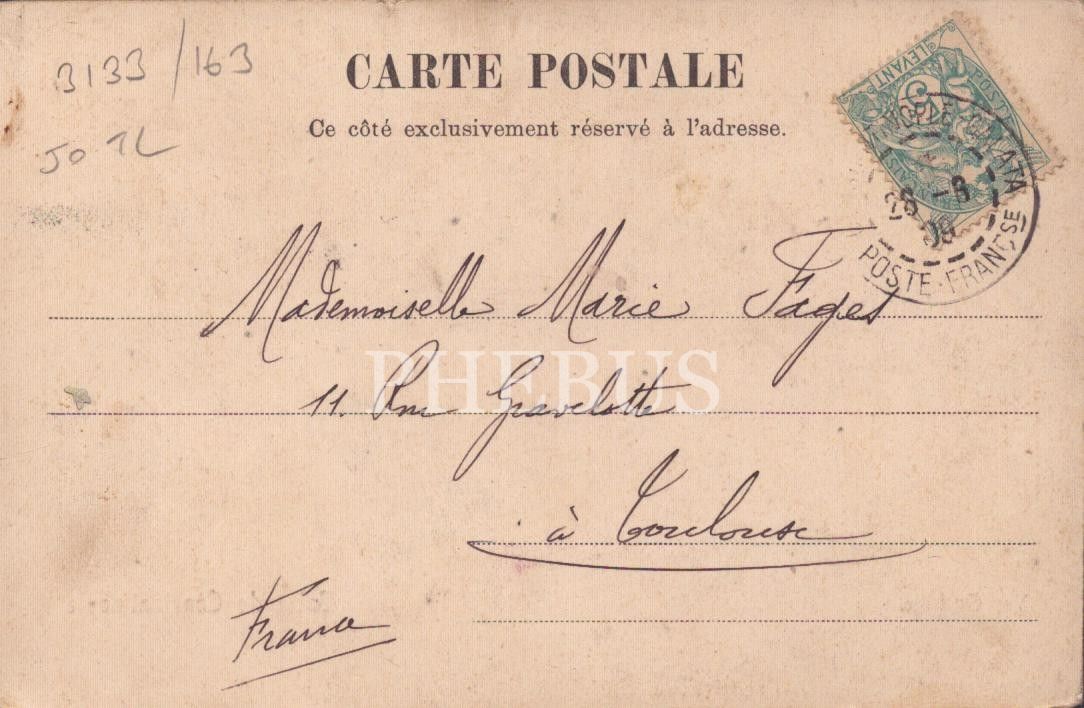 B133/163
50 TL
CARTE POSTALE
Ce côté exclusivement réservé à l'adresse.
LEVANT
5
POST
NOPLE-GALATA
POSTE-FRANÇSE
Mademoiselle Marie Fages
PHEBUS
11. Rue Gravelotte
à Toulouse
France